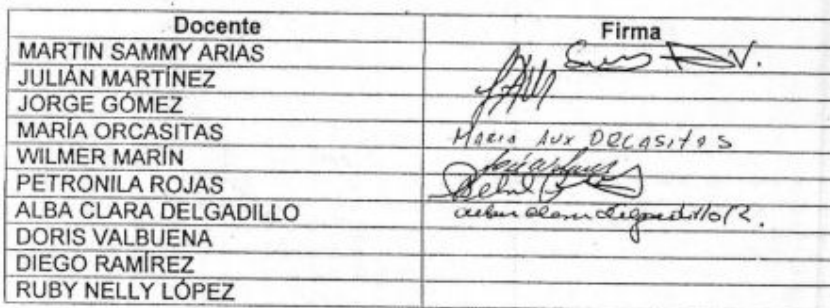 Docente Firma
MARTIN SAMMY ARIAS
JULIÁN MARTÍNEZ
JORGE GÓMEZ
MARÍA ORCASITAS Maria Aux Orcasitas
WILMER MARÍN
PETRONILA ROJAS
ALBA CLARA DELGADILLO
DORIS VALBUENA
DIEGO RAMÍREZ
RUBY NELLY LÓPEZ